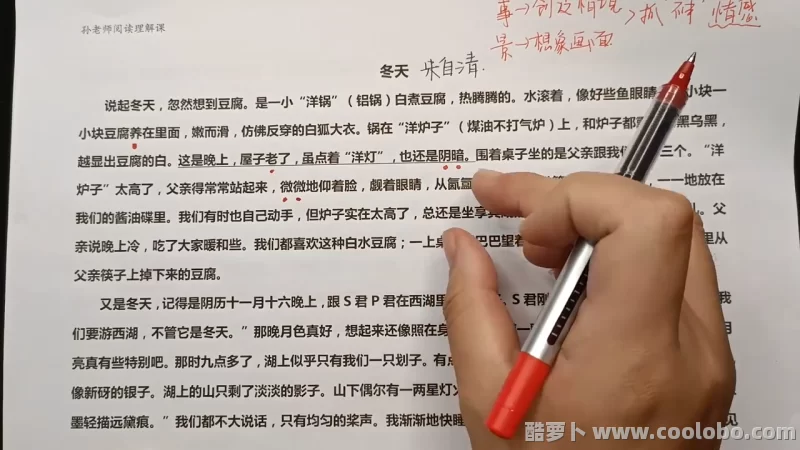 孙老师阅读理解课
景→想象画面
抓 情感
冬天 朱自清.
说起冬天，忽然想到豆腐。是一小“洋锅”（铝锅）白煮豆腐，热腾腾的。水滚着，像好些鱼眼睛 小块一
小块豆腐养在里面，嫩而滑，仿佛反穿的白狐大衣。锅在“洋炉子”（煤油不打气炉）上，和炉子都 黑乌黑，
越显出豆腐的白。这是晚上，屋子老了，虽点着“洋灯”，也还是阴暗。围着桌子坐的是父亲跟我 三个。“洋
炉子”太高了，父亲得常常站起来，微微地仰着脸，觑着眼睛，从氤氲 一一地放在
我们的酱油碟里。我们有时也自己动手，但炉子实在太高了，总还是坐享 父
亲说晚上冷，吃了大家暖和些。我们都喜欢这种白水豆腐；一上 巴巴望着 里从
父亲筷子上掉下来的豆腐。
又是冬天，记得是阴历十一月十六晚上，跟 S 君 P 君在西湖里 S 君刚 我
们要游西湖，不管它是冬天。”那晚月色真好，想起来还像照在身 月
亮真有些特别吧。那时九点多了，湖上似乎只有我们一只划子。有点
像新砑的银子。湖上的山只剩了淡淡的影子。山下偶尔有一两星灯火
墨轻描远黛痕。”我们都不大说话，只有均匀的桨声。我渐渐地快睡 见
酷萝卜 www.coolobo.com